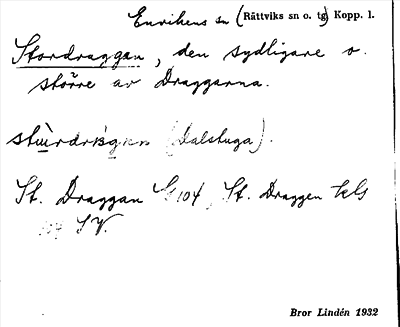 Envikens sn (Rättviks sn o. tg) Kopp. l.
Stordraggan, den sydligare o.
större av Draggarna.
(Dalstuga).
St. Draggan 104, St. Draggen kls
SV.
Bror Lindén 1932